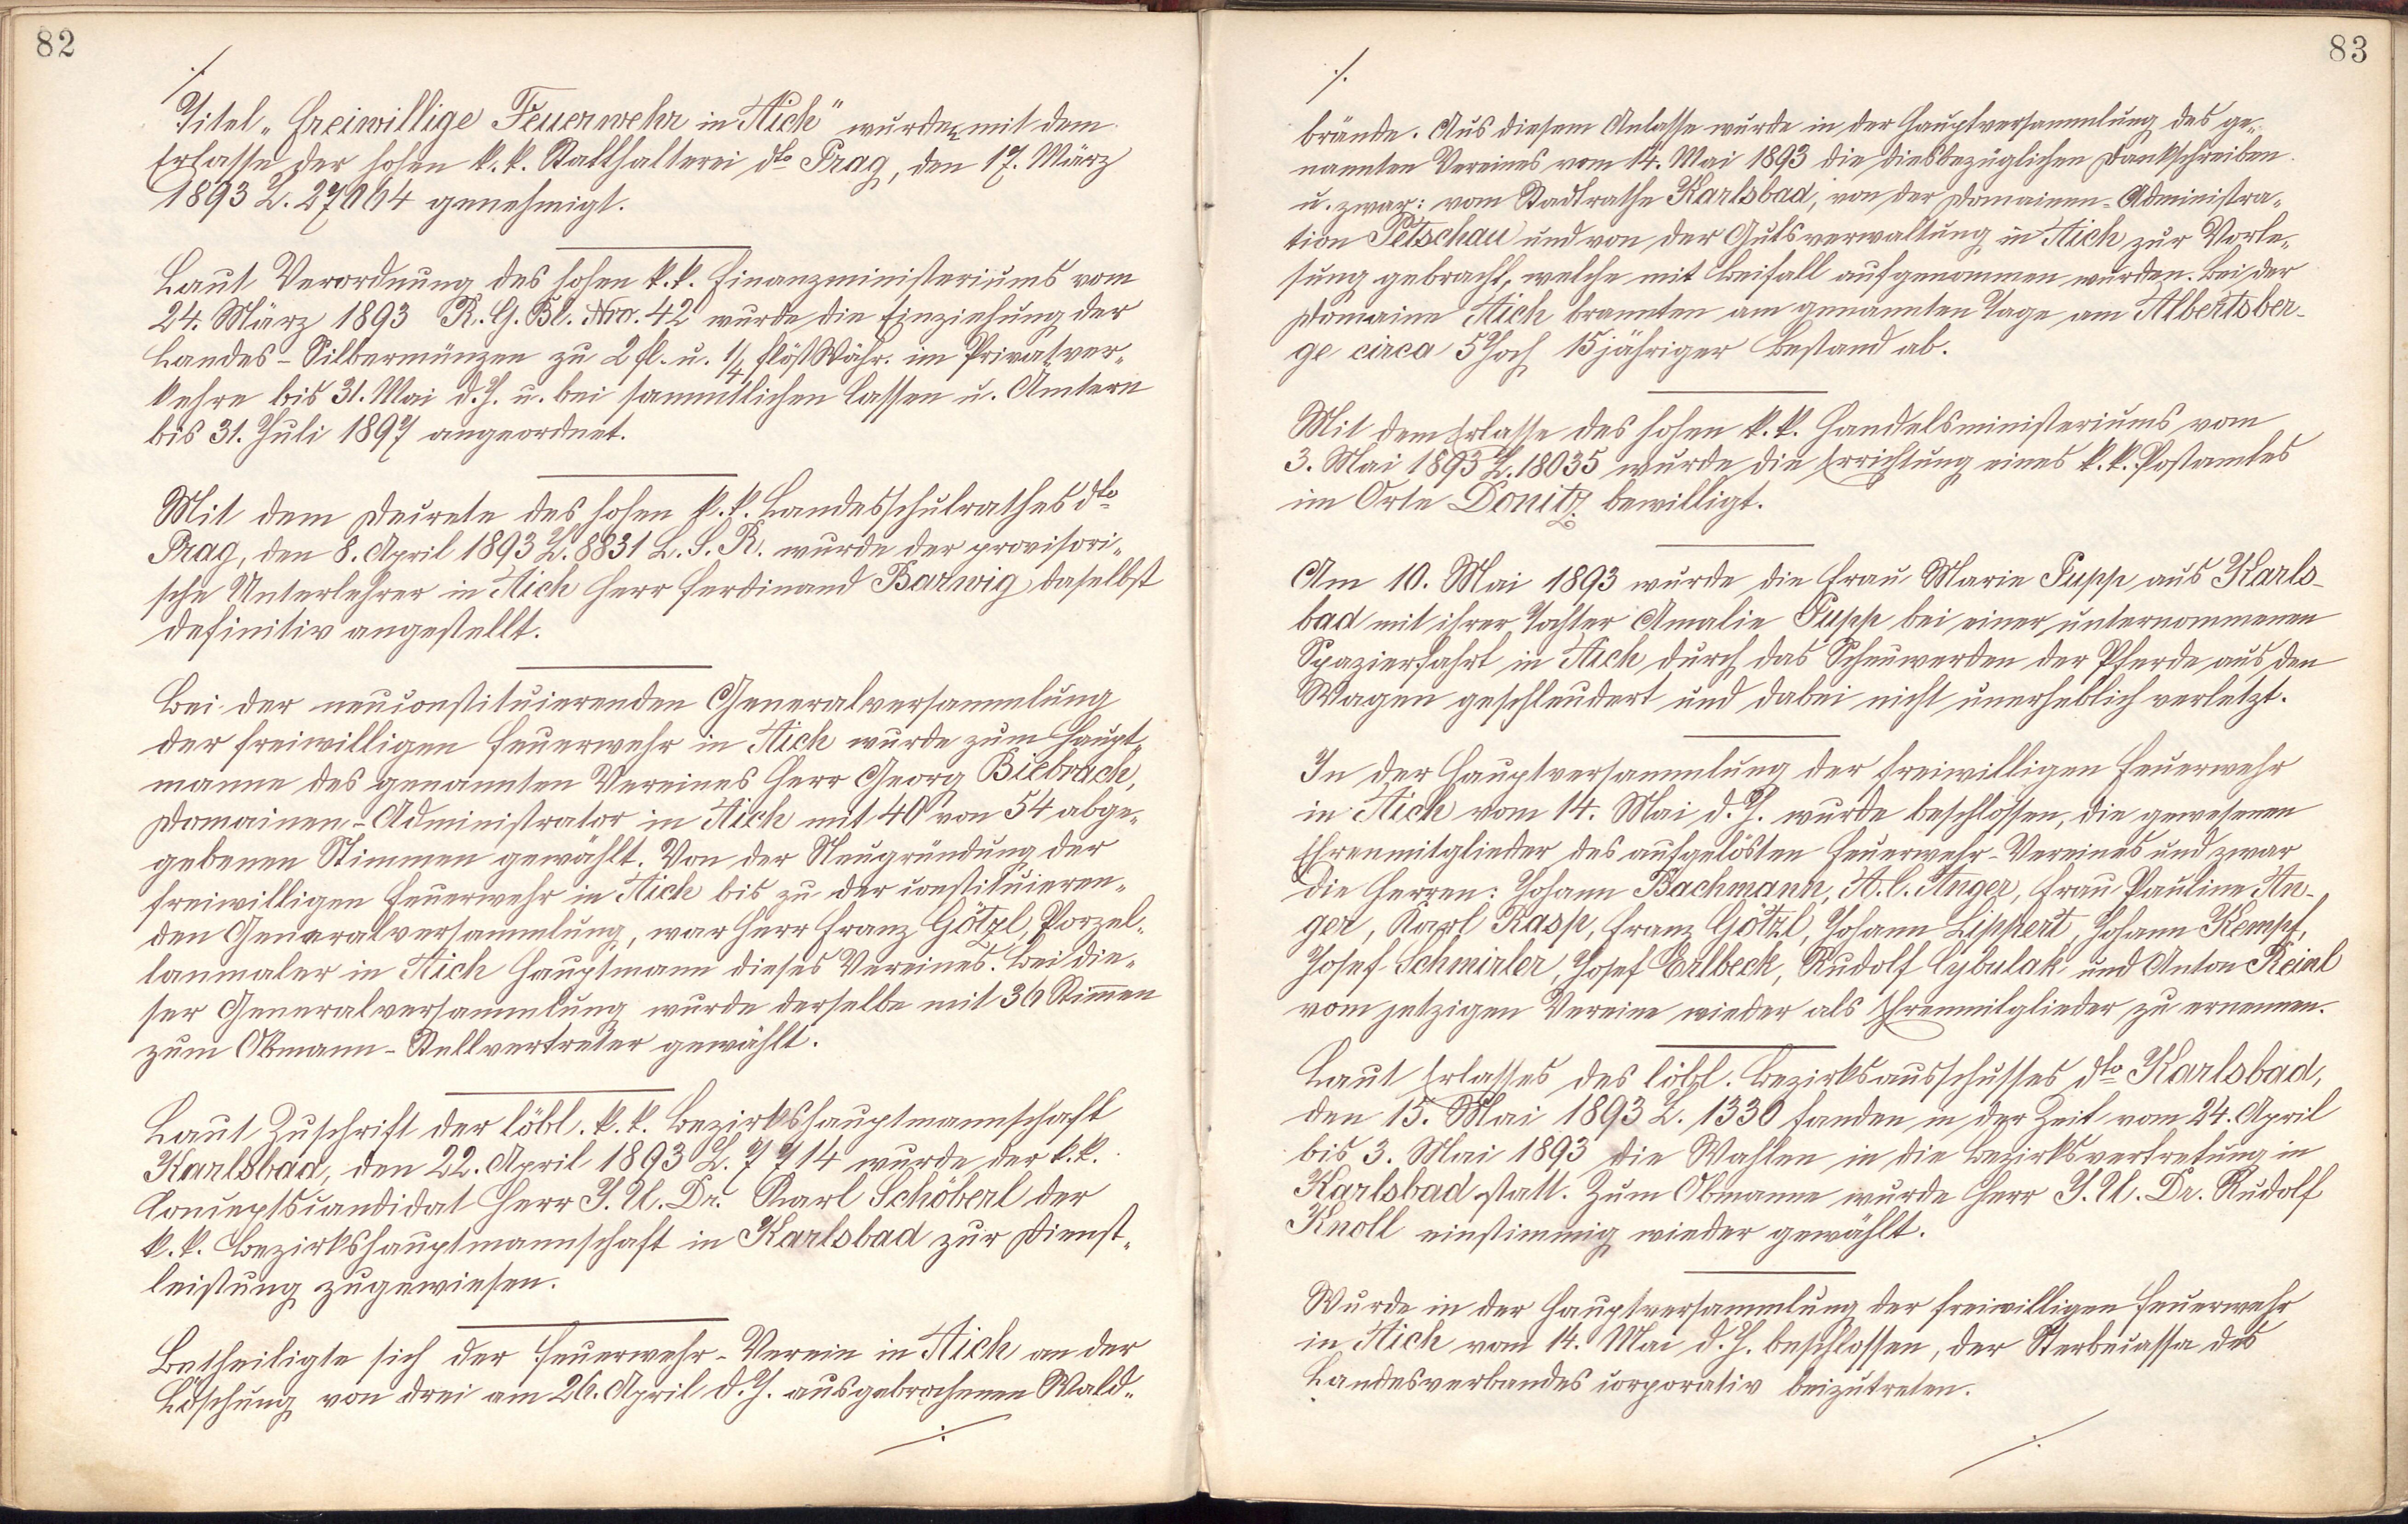 82
./.
Titel „Freiwillige Feuerwehr in Aich" wurden mit dem
Erlasse der hohen k. k. Statthalterei dto Prag, den 17. März
1893 Z. 27064 genehmigt.
Laut Verordnung des hohen k. k. Finanzministeriums vom
24. März 1893 R. G. Bl. Nro. 42 wurde die Einziehung der
Landes-Silbermünzen zu 2 fl. u. 1/4 fl öst Währ. im Privatver-
kehre bis 31. Mai d. J. u. bei sammtlichen Cassen u. Ämtern
bis 31. Juli 1897 angeordnet.
Mit dem Decrete des hohen k. k. Landesschulrathes dto
Prag, den 8. April 1893 Z. 8831 L. S. R. wurde der provisori-
sche Unterlehrer in Aich Herr Ferdinand Barwig daselbst
definitiv angestellt.
Bei der neuconstituierenden Generalversammlung
der freiwilligen Feuerwehr in Aich wurde zum Haupt-
manne des genannten Vereines Herr Georg Biebrach,
Domainen-Administrator in Aich mit 40 von 54 abge-
gebenen Stimmen gewählt. Von der Neugründung der
freiwilligen Feuerwehr in Aich bis zu der constituieren-
den Generalversammlung, war Herr Franz Götzl, Porzel-
lanmaler in Aich Hauptmann dieses Vereines. Bei die-
ser Generalversammlung wurde derselbe mit 36 Stimen
zum Obmann-Stellvertreter gewählt.
Laut Zuschrift der löbl. k. k. Bezirkshauptmannschaft
Karlsbad, den 22. April 1893 Z. 7714 wurde der k. k.
Conceptscandidat Herr J. U. Dr. Karl Schöberl der
k. k. Bezirkshauptmannschaft in Karlsbad zur Dienst-
leistung zugewiesen.
Betheiligte sich der Feuerwehr-Verein in Aich an der
Löschung von drei am 26. April d. J. ausgebrochenen Wald-
./.
83
./.
brände. Aus diesem Anlasse wurde in der Hauptversammlung des ge-
nannten Vereines vom 14. Mai 1893 die diesbezüglichen Dankschreiben
u. zwar: vom Stadtrathe Karlsbad, von der Domainen-Administra-
tion Petschau und von der Gutsverwaltung in Aich zur Vorle-
sung gebracht, welche mit Beifall aufgenommen wurden. Bei der
Domaine Aich brannten am genannten Tage am Albertsber-
ge circa 5 Joch 15 jähriger Bestand ab.
Mit dem Erlasse des hohen k. k. Handelsministeriums vom
3. Mai 1893 Z. 18035 wurde die Errichtung eines k. k. Postamtes
im Orte Donitz bewilligt.
Am 10. Mai 1893 wurde die Frau Marie Pupp aus Karls-
bad mit ihrer Tochter Amalie Pupp bei einer unternommenen
Spazierfahrt in Aich durch das Scheuwerden der Pferde aus den
Wagen geschleudert und dabei nicht unerheblich verletzt.
In der Hauptversammlung der freiwilligen Feuerwehr
in Aich vom 14. Mai d. J. wurde beschlossen, die gewesenen
Ehrenmitglieder des aufgelösten Feuerwehr-Vereines und zwar
die Herren: Johann Bachmann, A. C. Anger, Frau Pauline An-
ger, Karl Rasp, Franz Götzl, Johann Lippert, Johann Kempf,
Josef Schmirler, Josef Erlbeck, Rudolf Cybulak und Anton Reinl
vom jetzigen Vereine wieder als Ehrenmitglieder zu ernennen.
Laut Erlasses des löbl. Bezirksausschusses dto Karlsbad,
den 15. Mai 1893 Z. 1330 fanden in der Zeit vom 24. April
bis 3. Mai 1893 die Wahlen in die Bezirksvertretung in
Karlsbad statt. Zum Obmanne wurde Herr J. U. Dr. Rudolf
Knoll einstimmig wieder gewählt.
Wurde in der Hauptversammlung der freiwilligen Feuerwehr
in Aich vom 14. Mai d. J. beschlossen, der Sterbecassa des
Landesverbandes corporativ beizutreten.
./.